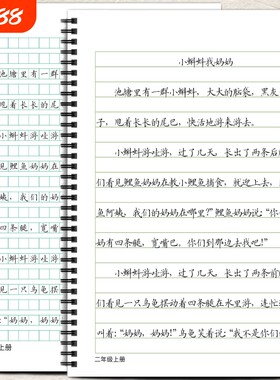 88
池塘里有一群
甩着长长的尾
小蝌蚪游哇游
看见鲤鱼妈妈在
姨,我们的妈妈
四条腿,宽嘴
小蝌蚪游哇游
见一只乌龟摆
:“妈妈,妈妈
上册
小蝌蚪找妈妈
池塘里有一群小蝌蚪,大大的脑袋,黑灰
子,甩着长长的尾巴,快活地游来游去。
小蝌蚪游哇游,过了几天,长出了两条后
们看见鲤鱼妈妈在教小鲤鱼捕食,就迎上去,
鱼阿姨,我们的妈妈在哪里?”鲤鱼妈妈说:“你
妈有四条腿,宽嘴巴。你们到那边去找吧!”
小蝌蚪游哇游,过了几天,长出了两条前
们看见一只乌龟摆动着四条腿在水里游,连忙
叫着:“妈妈,妈妈!”乌龟笑着说:“我不是你们
二年级上册